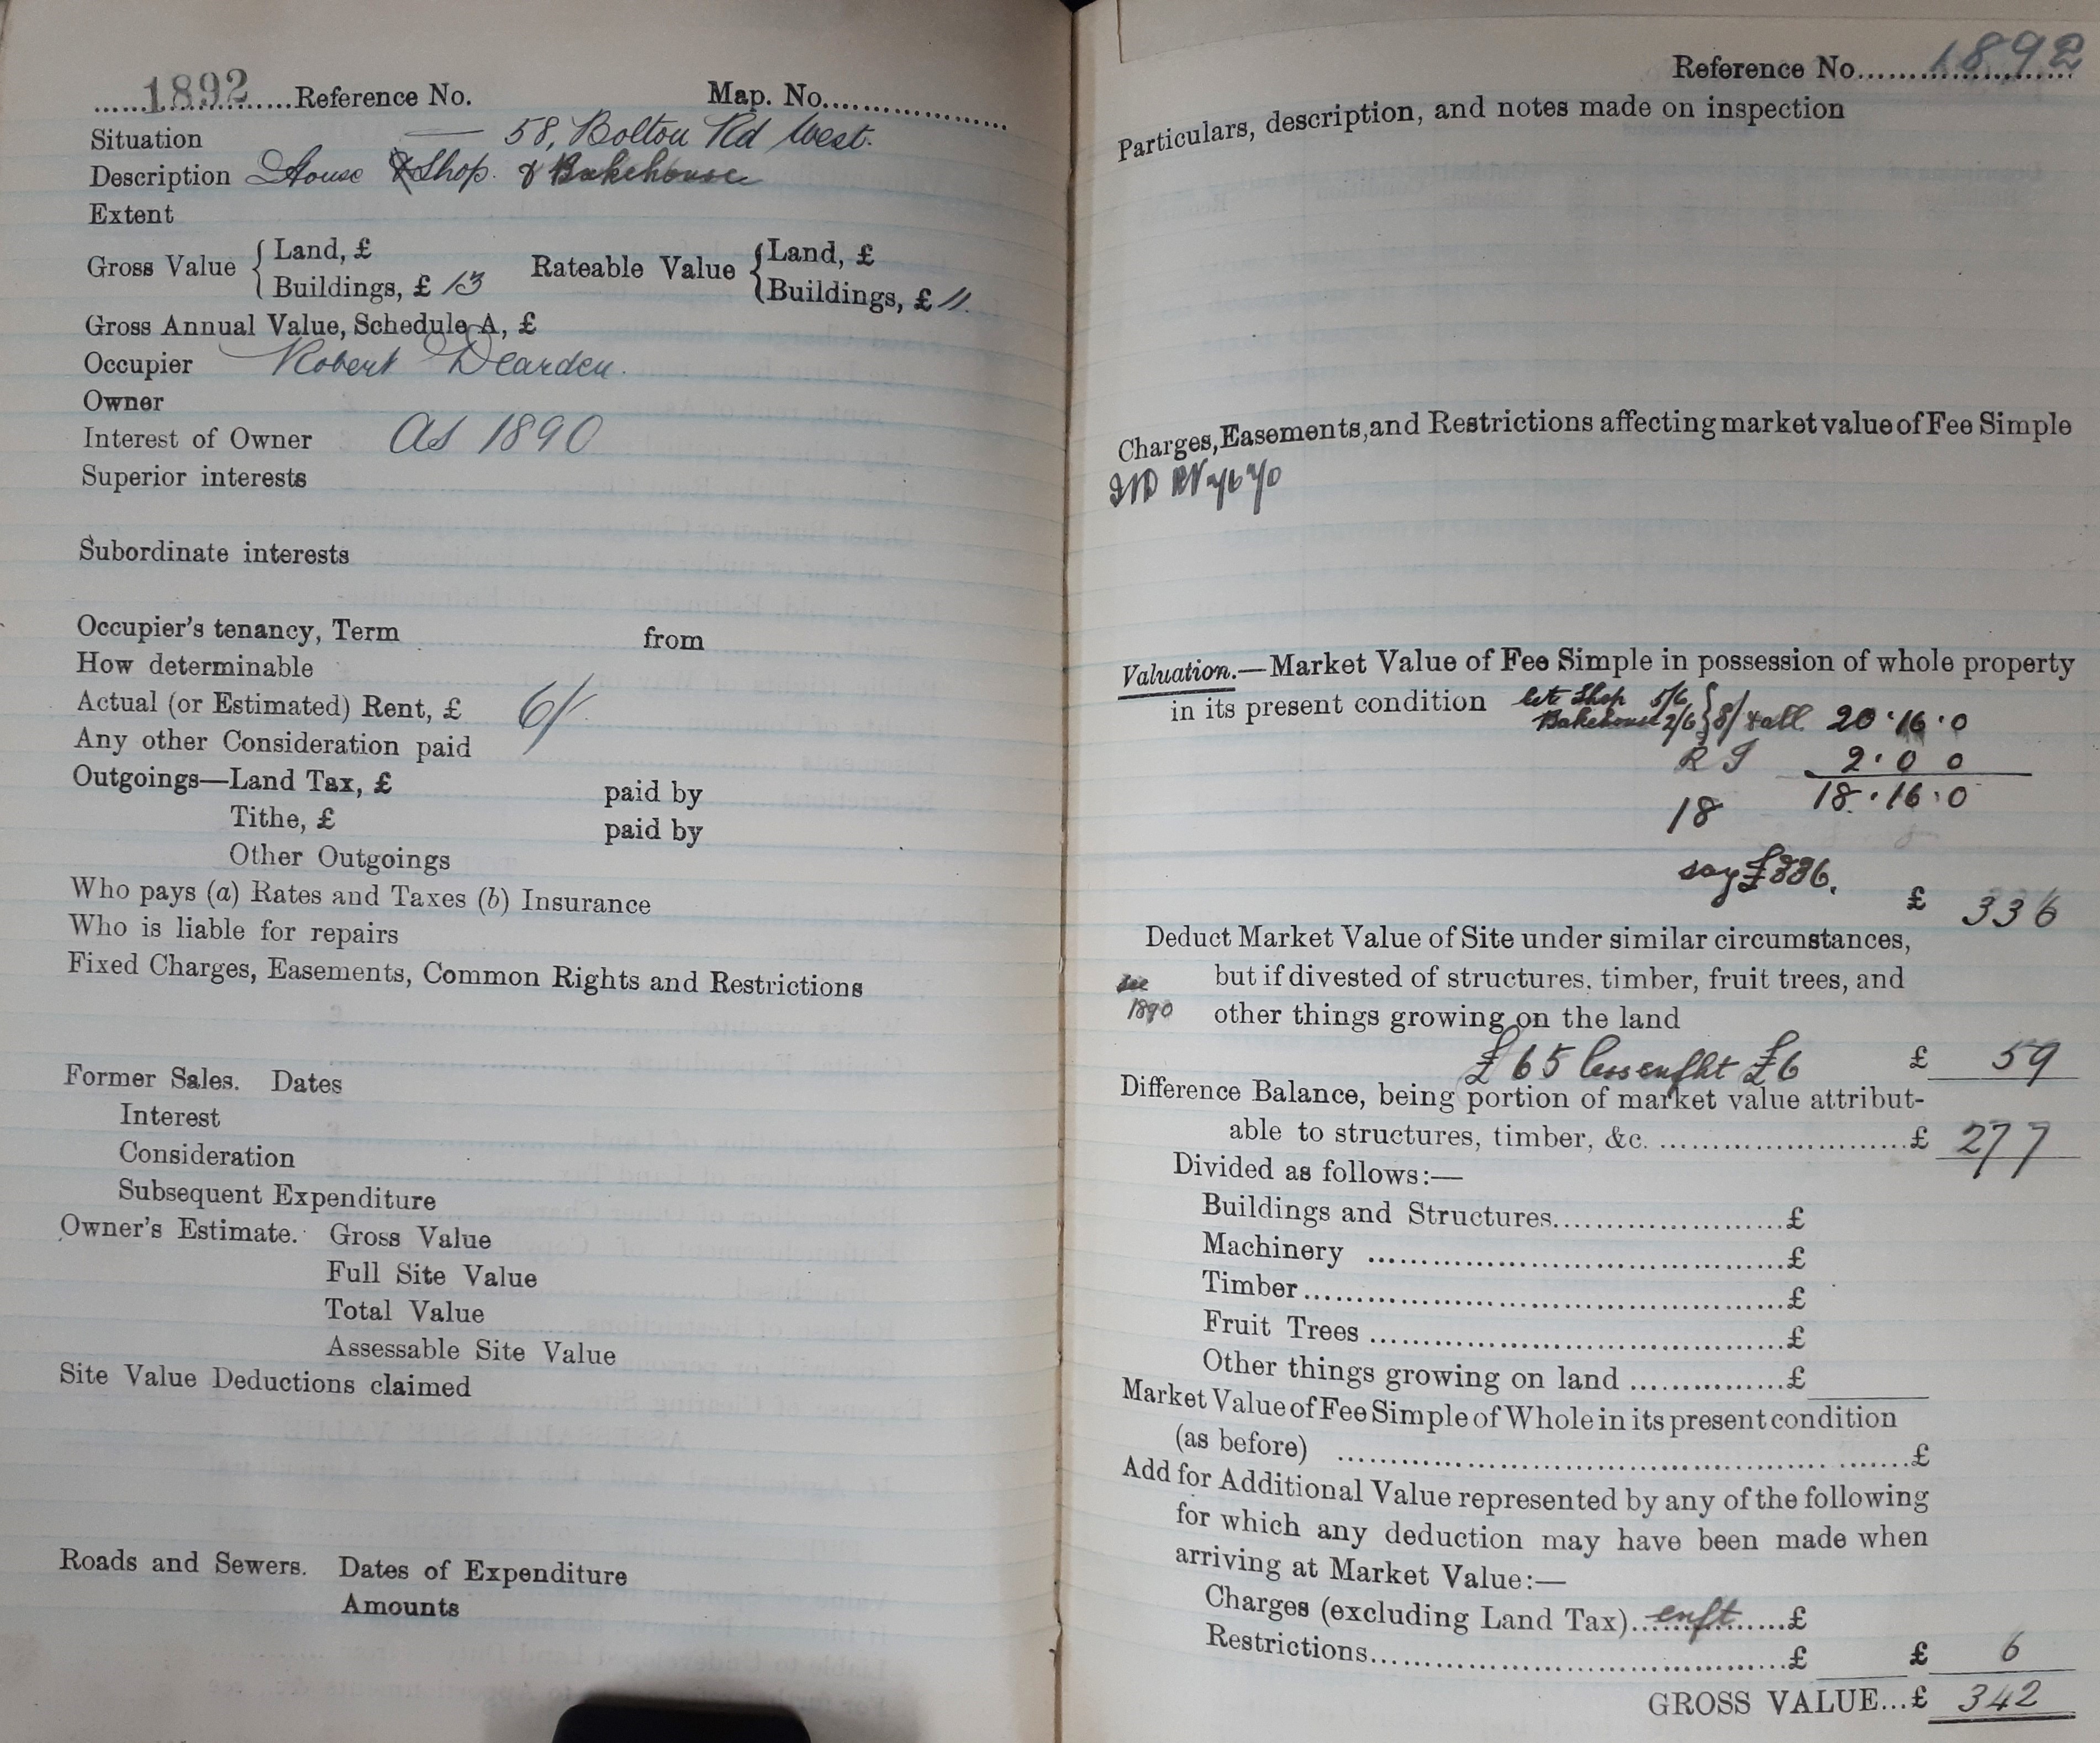 ......1892......Reference No. Map. No..................
Situation — 58, Bolton Rd West.
Description House & Shop. & Bakehouse
Extent
Gross Value { Land, £ Rateable Value { Land, £
Buildings, £ 13 Buildings, £ 11.
Gross Annual Value, Schedule A, £
Occupier Robert Dearden.
Owner
Interest of Owner As 1890
Superior interests
Subordinate interests
Occupier's tenancy, Term from
How determinable
Actual (or Estimated) Rent, £ 6/-
Any other Consideration paid
Outgoings—Land Tax, £ paid by
Tithe, £ paid by
Other Outgoings
Who pays (a) Rates and Taxes (b) Insurance
Who is liable for repairs
Fixed Charges, Easements, Common Rights and Restrictions
Former Sales. Dates
Interest
Consideration
Subsequent Expenditure
Owner's Estimate. Gross Value
Full Site Value
Total Value
Assessable Site Value
Site Value Deductions claimed
Roads and Sewers. Dates of Expenditure
Amounts
Reference No......1892
Particulars, description, and notes made on inspection
Charges, Easements, and Restrictions affecting market value of Fee Simple
Valuation.—Market Value of Fee Simple in possession of whole property
in its present condition Shop 5/6
Bakehouse 2/6 } 8/ 20.16.0
2.0 0
18.16.0
18
say £336.
£ 336
Deduct Market Value of Site under similar circumstances,
see but if divested of structures, timber, fruit trees, and
1890 other things growing on the land
£65 less enfht £6 £ 59
Difference Balance, being portion of market value attribut-
able to structures, timber, &c. ........................£ 277
Divided as follows:—
Buildings and Structures......................£
Machinery ........................................£
Timber..............................................£
Fruit Trees ........................................£
Other things growing on land ...............£
Market Value of Fee Simple of Whole in its present condition
(as before) ......................................................£
Add for Additional Value represented by any of the following
for which any deduction may have been made when
arriving at Market Value:—
Charges (excluding Land Tax)...enft......£
Restrictions........................................£ £ 6
GROSS VALUE...£ 342